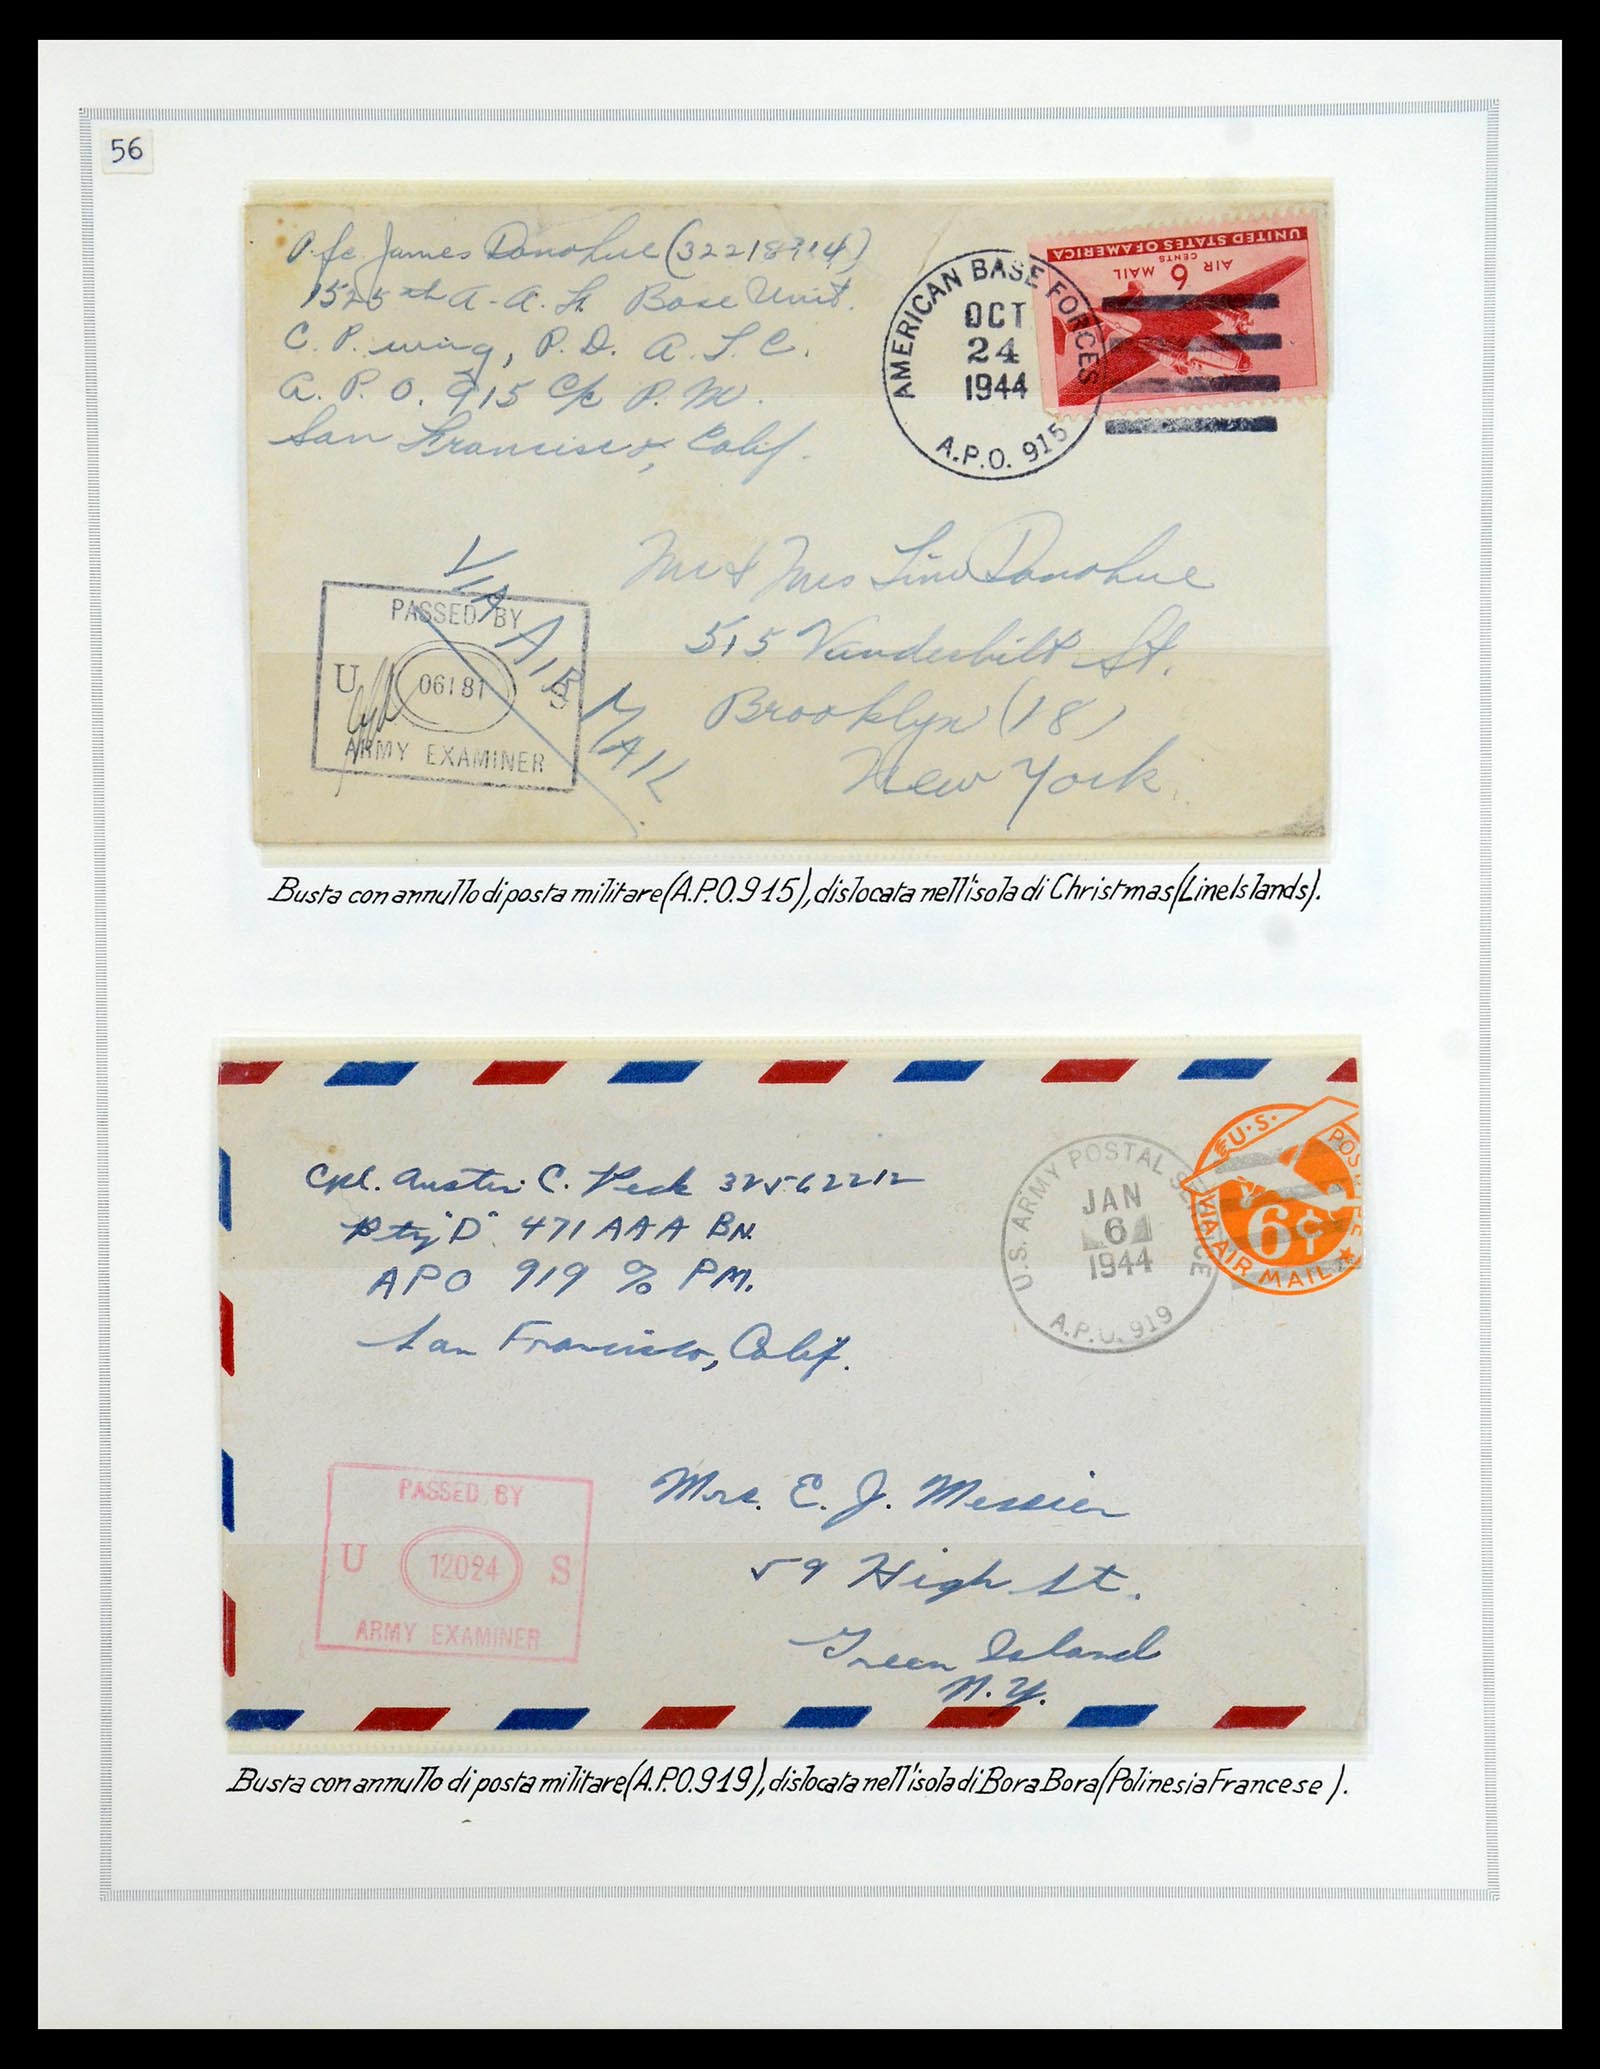 56
Pfc James Donohue (32218914)
1525th A.A.F. Base Unit.
C. P. wing, P. D. A. T. C.
A. P. O. 915 c/o P. M.
San Francisco, Calif.
AMERICAN BASE FORCES
OCT
24
1944
A.P.O. 915
UNITED STATES OF AMERICA
AIR 6 MAIL
CENTS
VIA AIR MAIL
PASSED BY
U 06181 S
ARMY EXAMINER
Mr & Mrs Donohue
515 Vanderbilt St.
Brooklyn (18)
New York
Busta con annullo di posta militare (A.P.O. 915), dislocata nell'isola di Christmas (Line Islands).
Cpl. Austin C. Peck 32562212
Bty "D" 471 AAA BN.
APO 919 c/o PM.
San Francisco, Calif.
U.S. ARMY POSTAL SERVICE
JAN
6
1944
A.P.O. 919
U.S. POSTAGE
6¢
VIA AIR MAIL
PASSED BY
U 12024 S
ARMY EXAMINER
Mrs. E. J. Messier
59 High St.
Green Island
N.Y.
Busta con annullo di posta militare (A.P.O. 919), dislocata nell'isola di Bora Bora (Polinesia Francese).